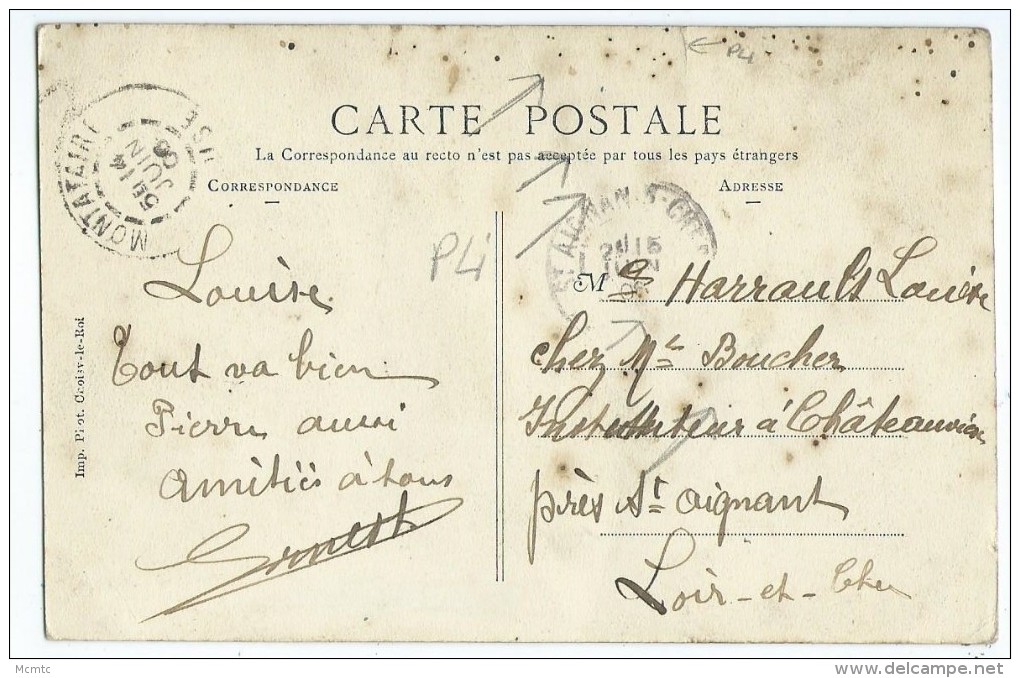 PLi
CARTE POSTALE
La Correspondance au recto n'est pas acceptée par tous les pays étrangers
CORRESPONDANCE
ADRESSE
MONTATAIRE OISE
14
JUIN
ST AIGNAN-S-CHER
15
PLi
Louise
Tout va bien
Pierre aussi
Amitiés à tous
Ernest
M Harrault Louise
chez Mr Boucher
Instituteur à Châteauvieux
près St aignant
Loir-et-Cher
Imp. Pigot. Choisy-le-Roi
Mcmtc
www.delcampe.net